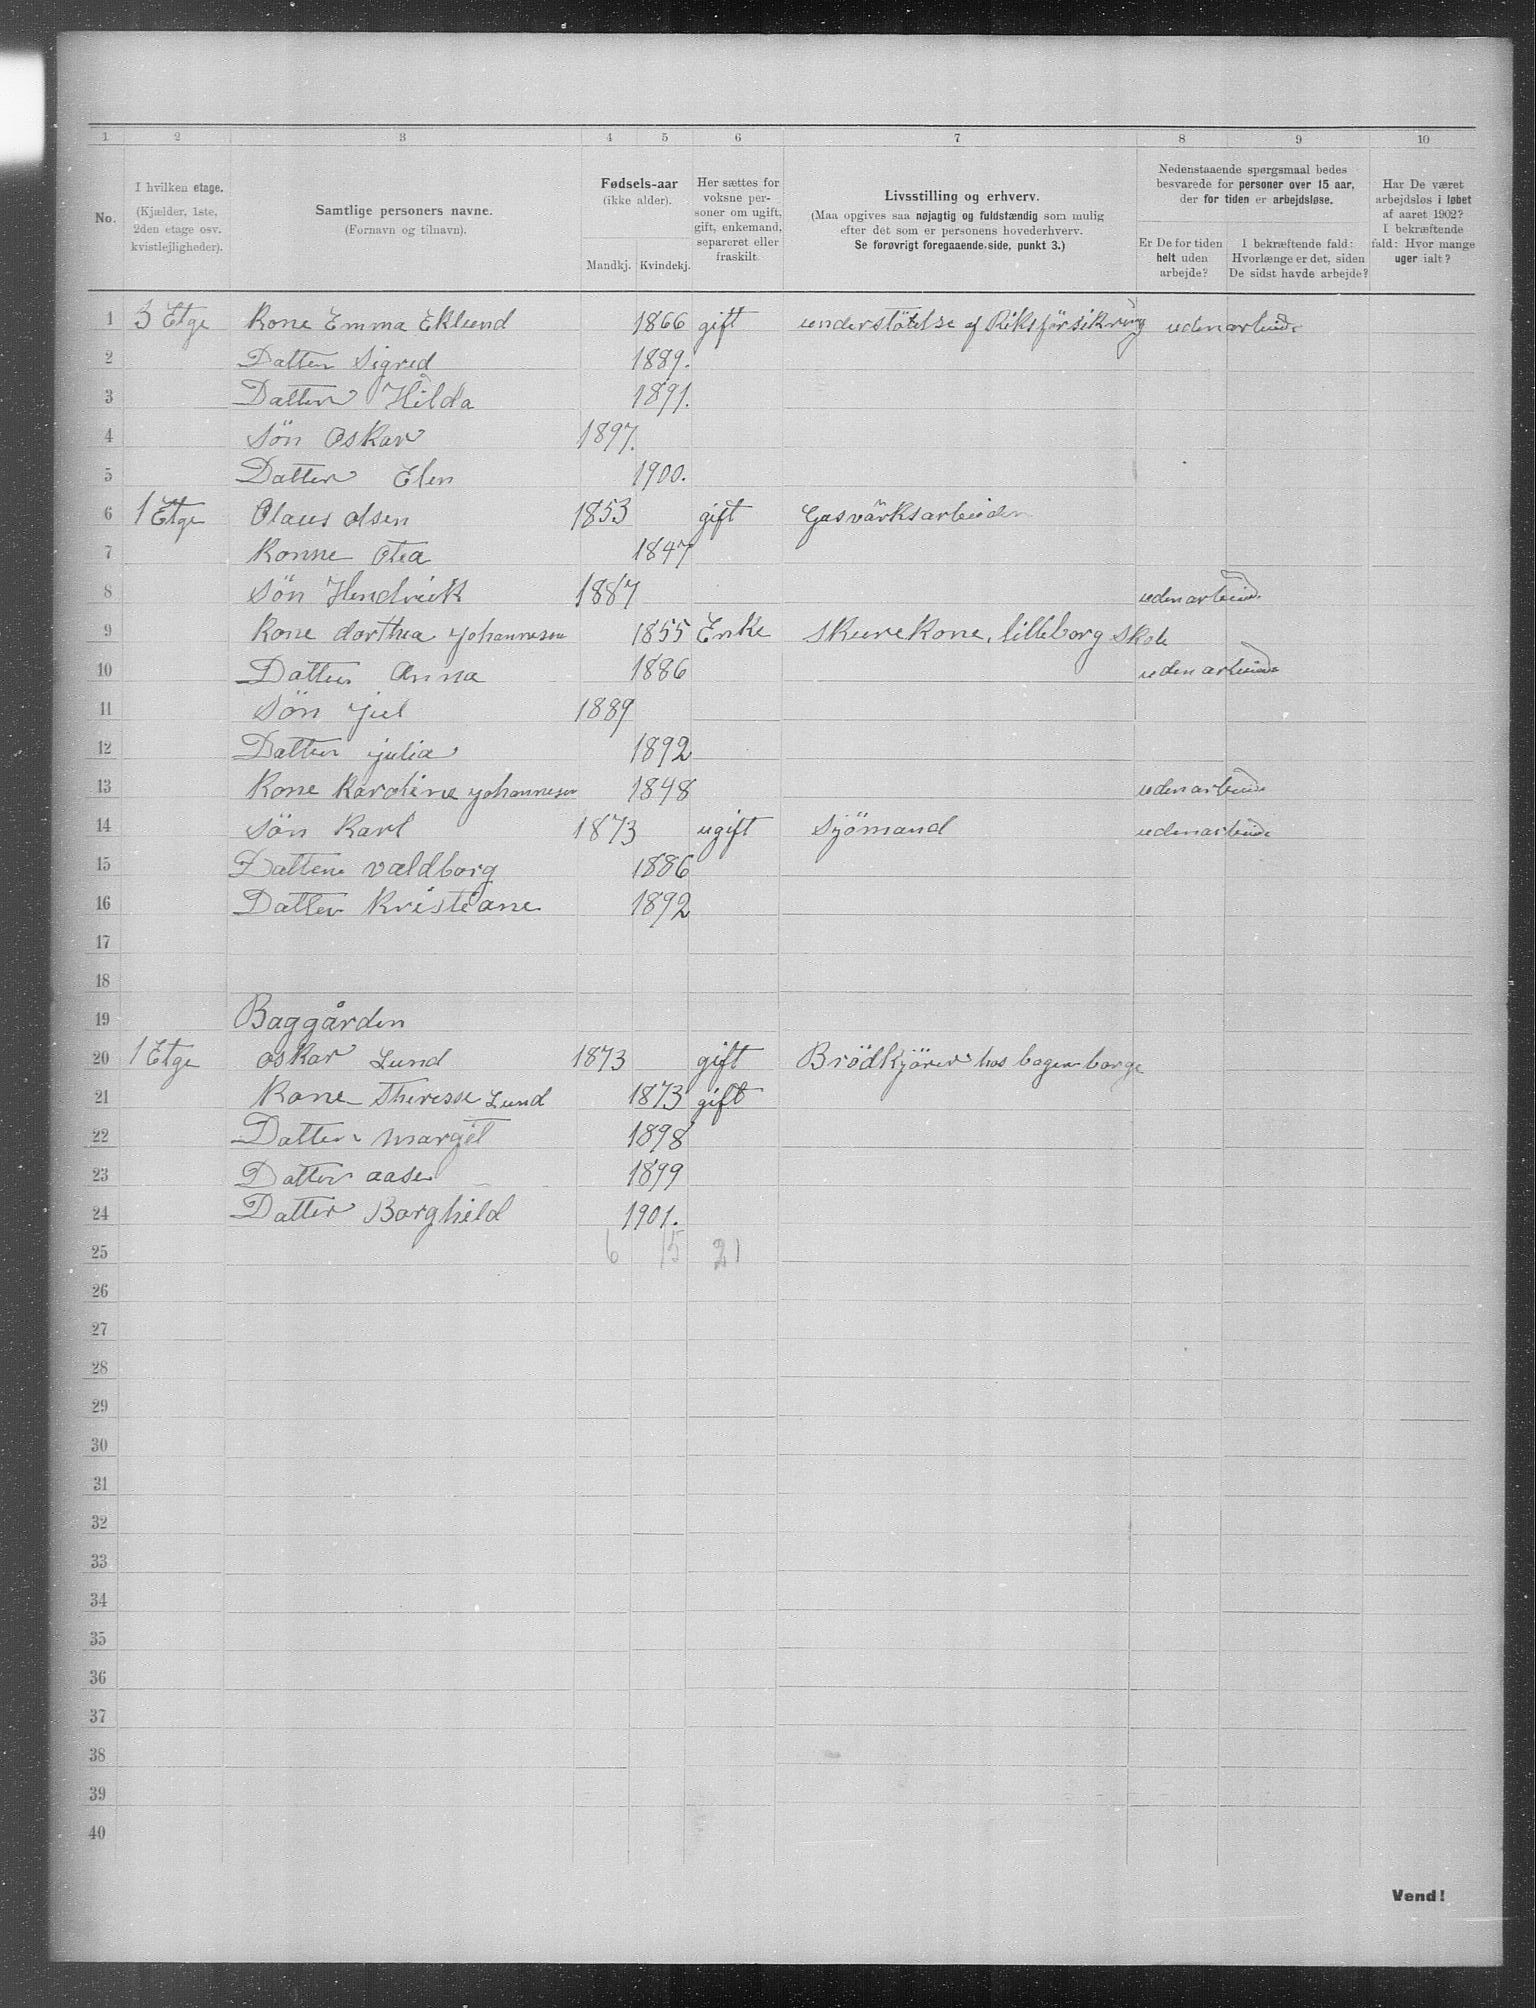 1 2 3 4 5 6 7 8 9 10
No.
I hvilken etage.
(Kjælder, 1ste,
2den etage osv.
kvistlejligheder).
Samtlige personers navne.
(Fornavn og tilnavn).
Fødsels-aar
(ikke alder).
Mandkj. Kvindekj.
Her sættes for
voksne per-
soner om ugift,
gift, enkemand,
separeret eller
fraskilt.
Livsstilling og erhverv.
(Maa opgives saa nøjagtig og fuldstændig som mulig
efter det som er personens hovederhverv.
Se forøvrigt foregaaende side, punkt 3.)
Nedenstaaende spørgsmaal bedes
besvarede for personer over 15 aar,
der for tiden er arbejdsløse.
Er De for tiden
helt uden
arbejde?
I bekræftende fald:
Hvorlænge er det, siden
De sidst havde arbejde?
Har De været
arbejdsløs i løbet
af aaret 1902?
I bekræftende
fald: Hvor mange
uger ialt?
1 3 Etge Kone Emma Eklund 1866 gift understötelse af Riksförsikring uden arbeide
2 Datter Sigrid 1889.
3 Datter Hilda 1891.
4 Sön Oskar 1897.
5 Datter Elen 1900.
6 1 Etge Olaus Olsen 1853 gift Gasvärksarbeider
7 Konne Otea 1847
8 Sön Hendrick 1887 uden arbeide
9 Kone dorthea Johannesen 1855 Enke Skurekone, lilleborg Skole
10 Datter Anna 1886 uden arbeide
11 Sön Juel 1889
12 Datter julia 1892
13 Kone Karoline Johannesen 1848 uden arbeide
14 Sön Karl 1873 ugift Sjömand uden arbeide
15 Datter valdborg 1886
16 Datter Kristiane 1892
17
18
19 Baggården
20 1 Etge Oskar Lund 1873 gift Brödkjörer hos bager borge
21 Kone Theresse Lund 1873 gift
22 Datter Margit 1898
23 Datter aase 1899
24 Datter Borghild 1901.
25 6 15 21
26
27
28
29
30
31
32
33
34
35
36
37
38
39
40
Vend!